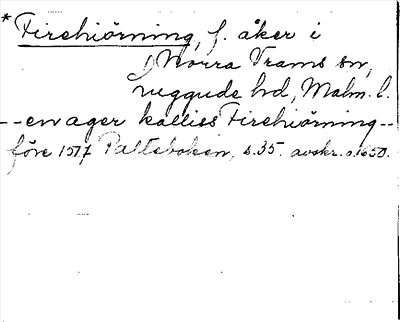 * Firehiörning, f. åker i
Norra Vrams sn,
Luggude hd, Malm. l.
--en ager kalliss Firehiörning--
före 1517 Palteboken, s. 35. avskr. o. 1650.